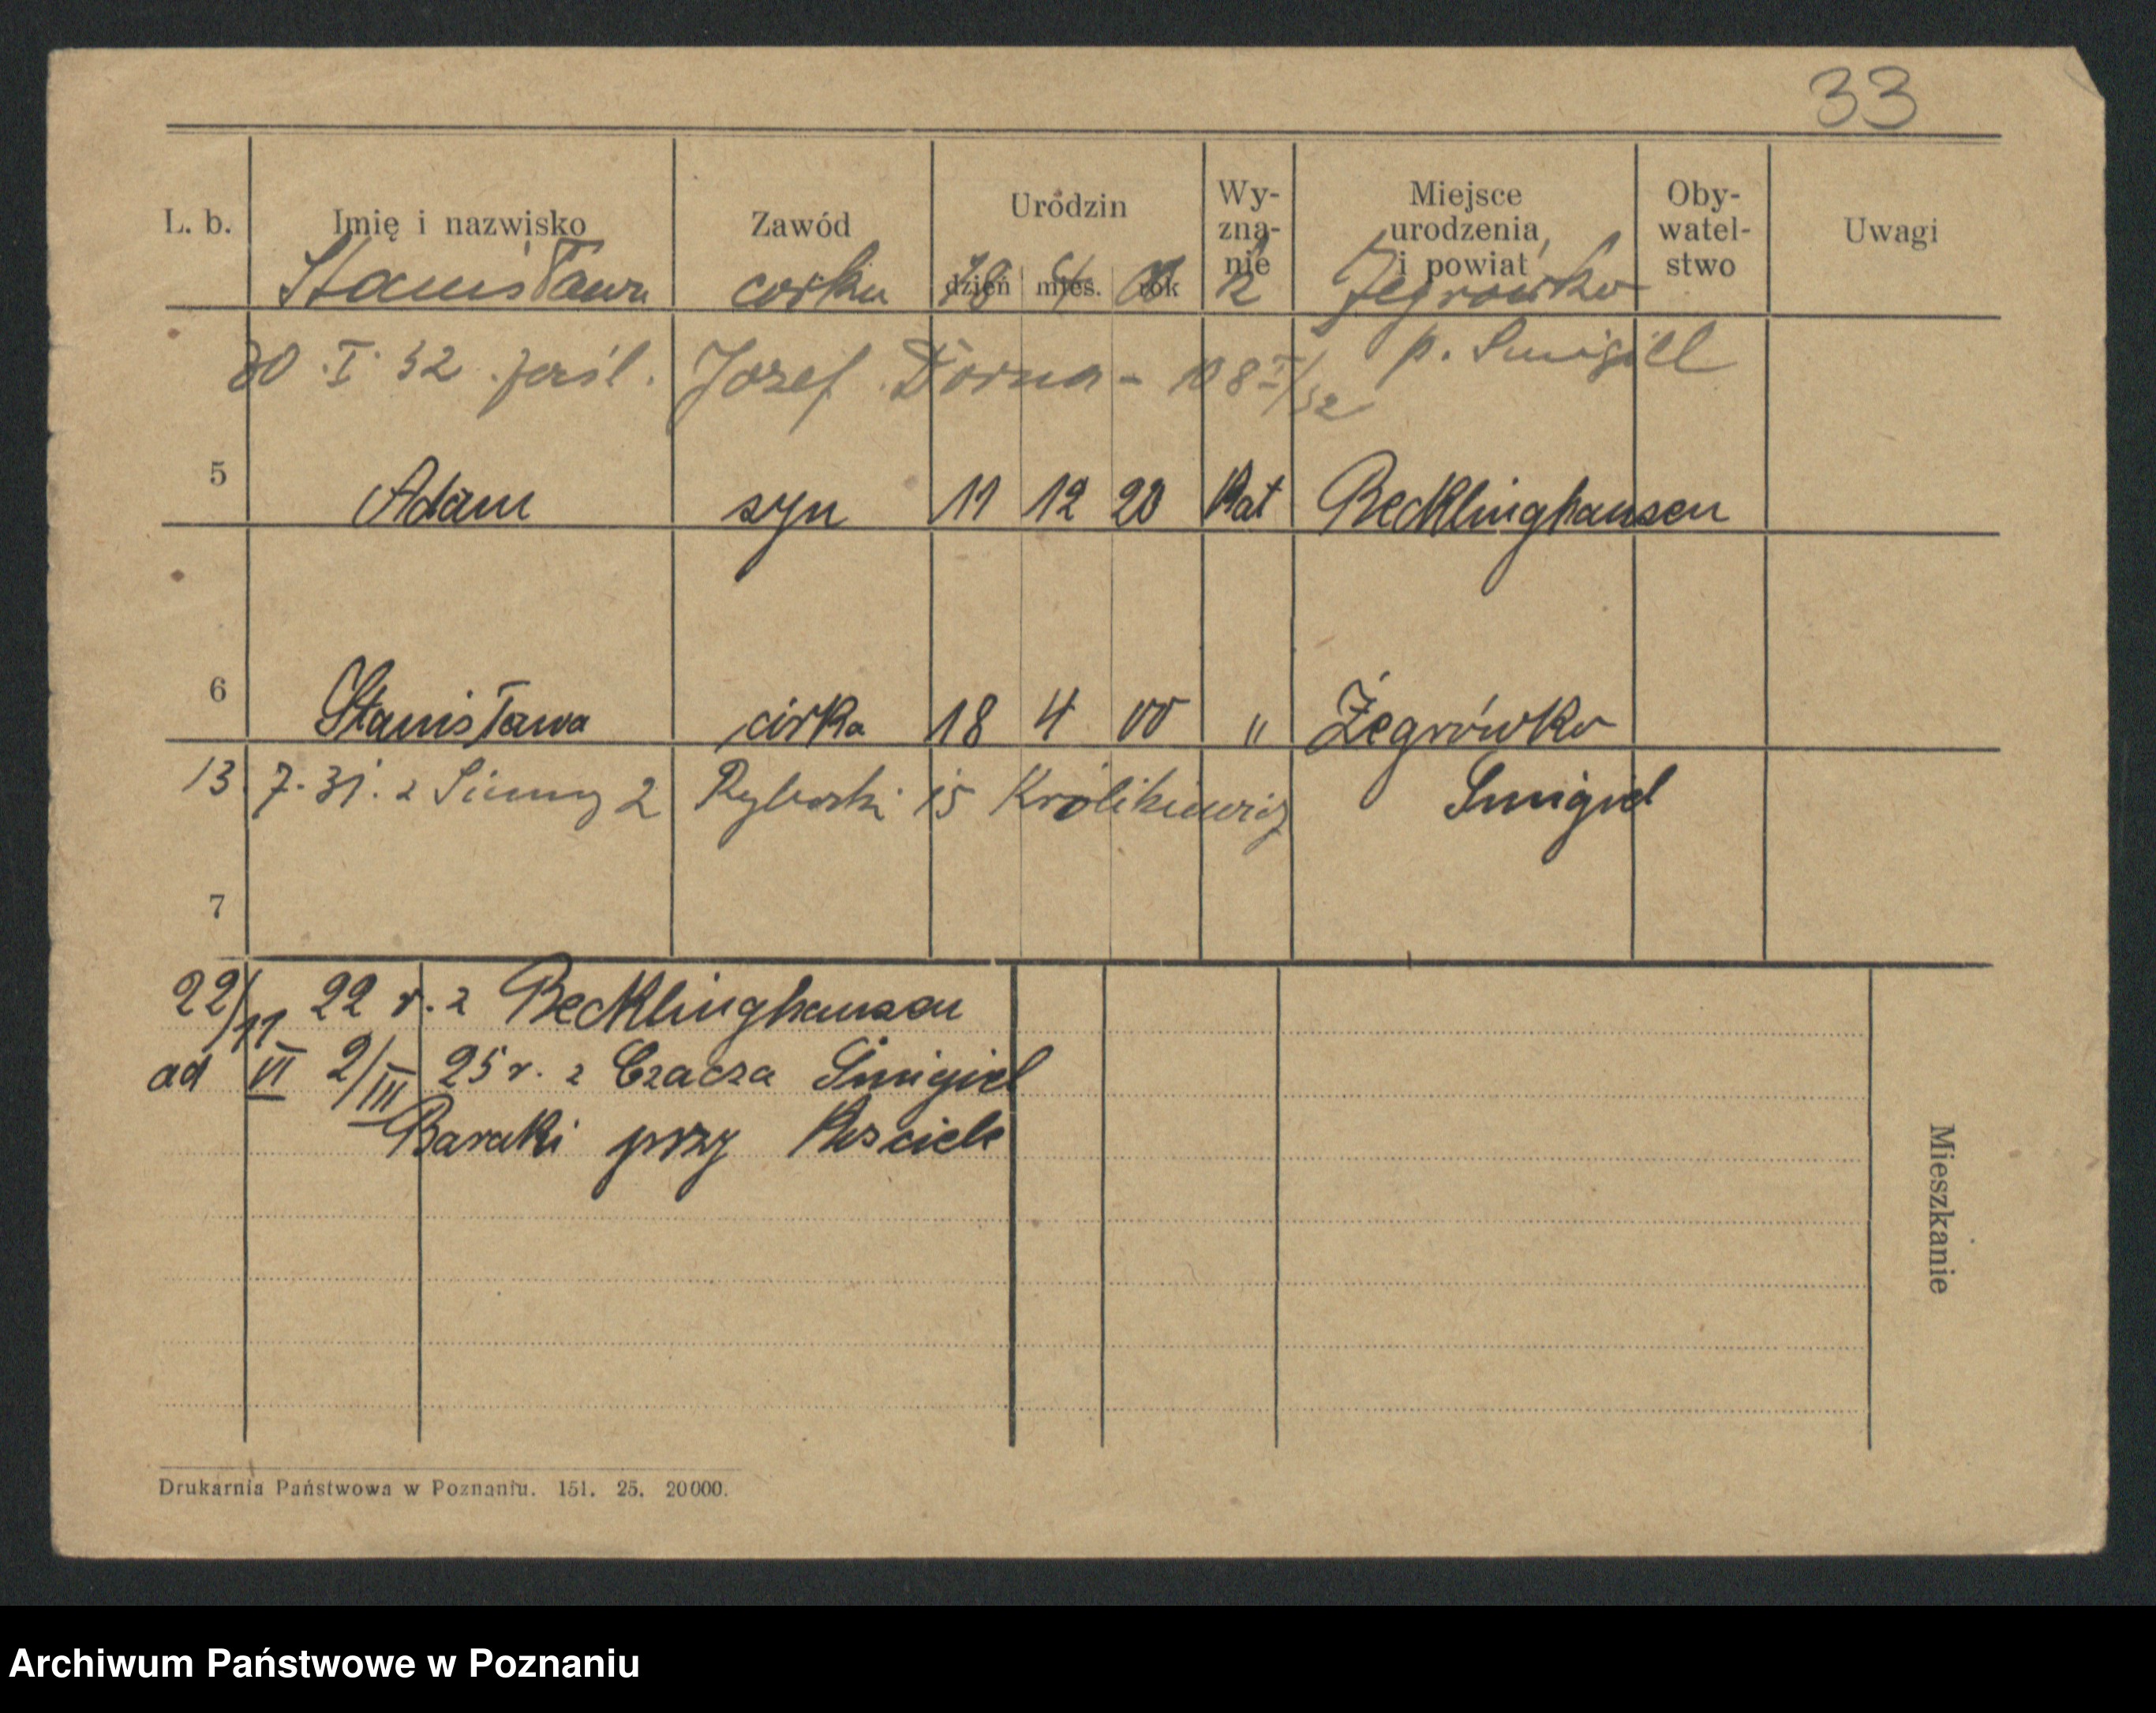 33
L. b. Imię i nazwisko Zawód Urodzin dzień mies. rok Wy-zna-nie Miejsce urodzenia i powiat Oby-watel-stwo Uwagi
Stanisława corka 18 4 00 k Żegrowko
20 I 32 Jozef Dorna - 10 8 I/32 p. Smigiel
5 Adam syn 11 12 20 Kat Recklinghausen
6 Stanisława córka 18 4 00 " Żegrówko
13. 7. 31. z Zimny 2 Rybacki 15 Królikiewicz Smigiel
7
22/11 22 r. z Recklinghausen
ad VI 2/III 25 r. z Czacza Śmigiel
Baraki przy Kosciele
Mieszkanie
Drukarnia Państwowa w Poznaniu. 151. 25. 20000.
Archiwum Państwowe w Poznaniu